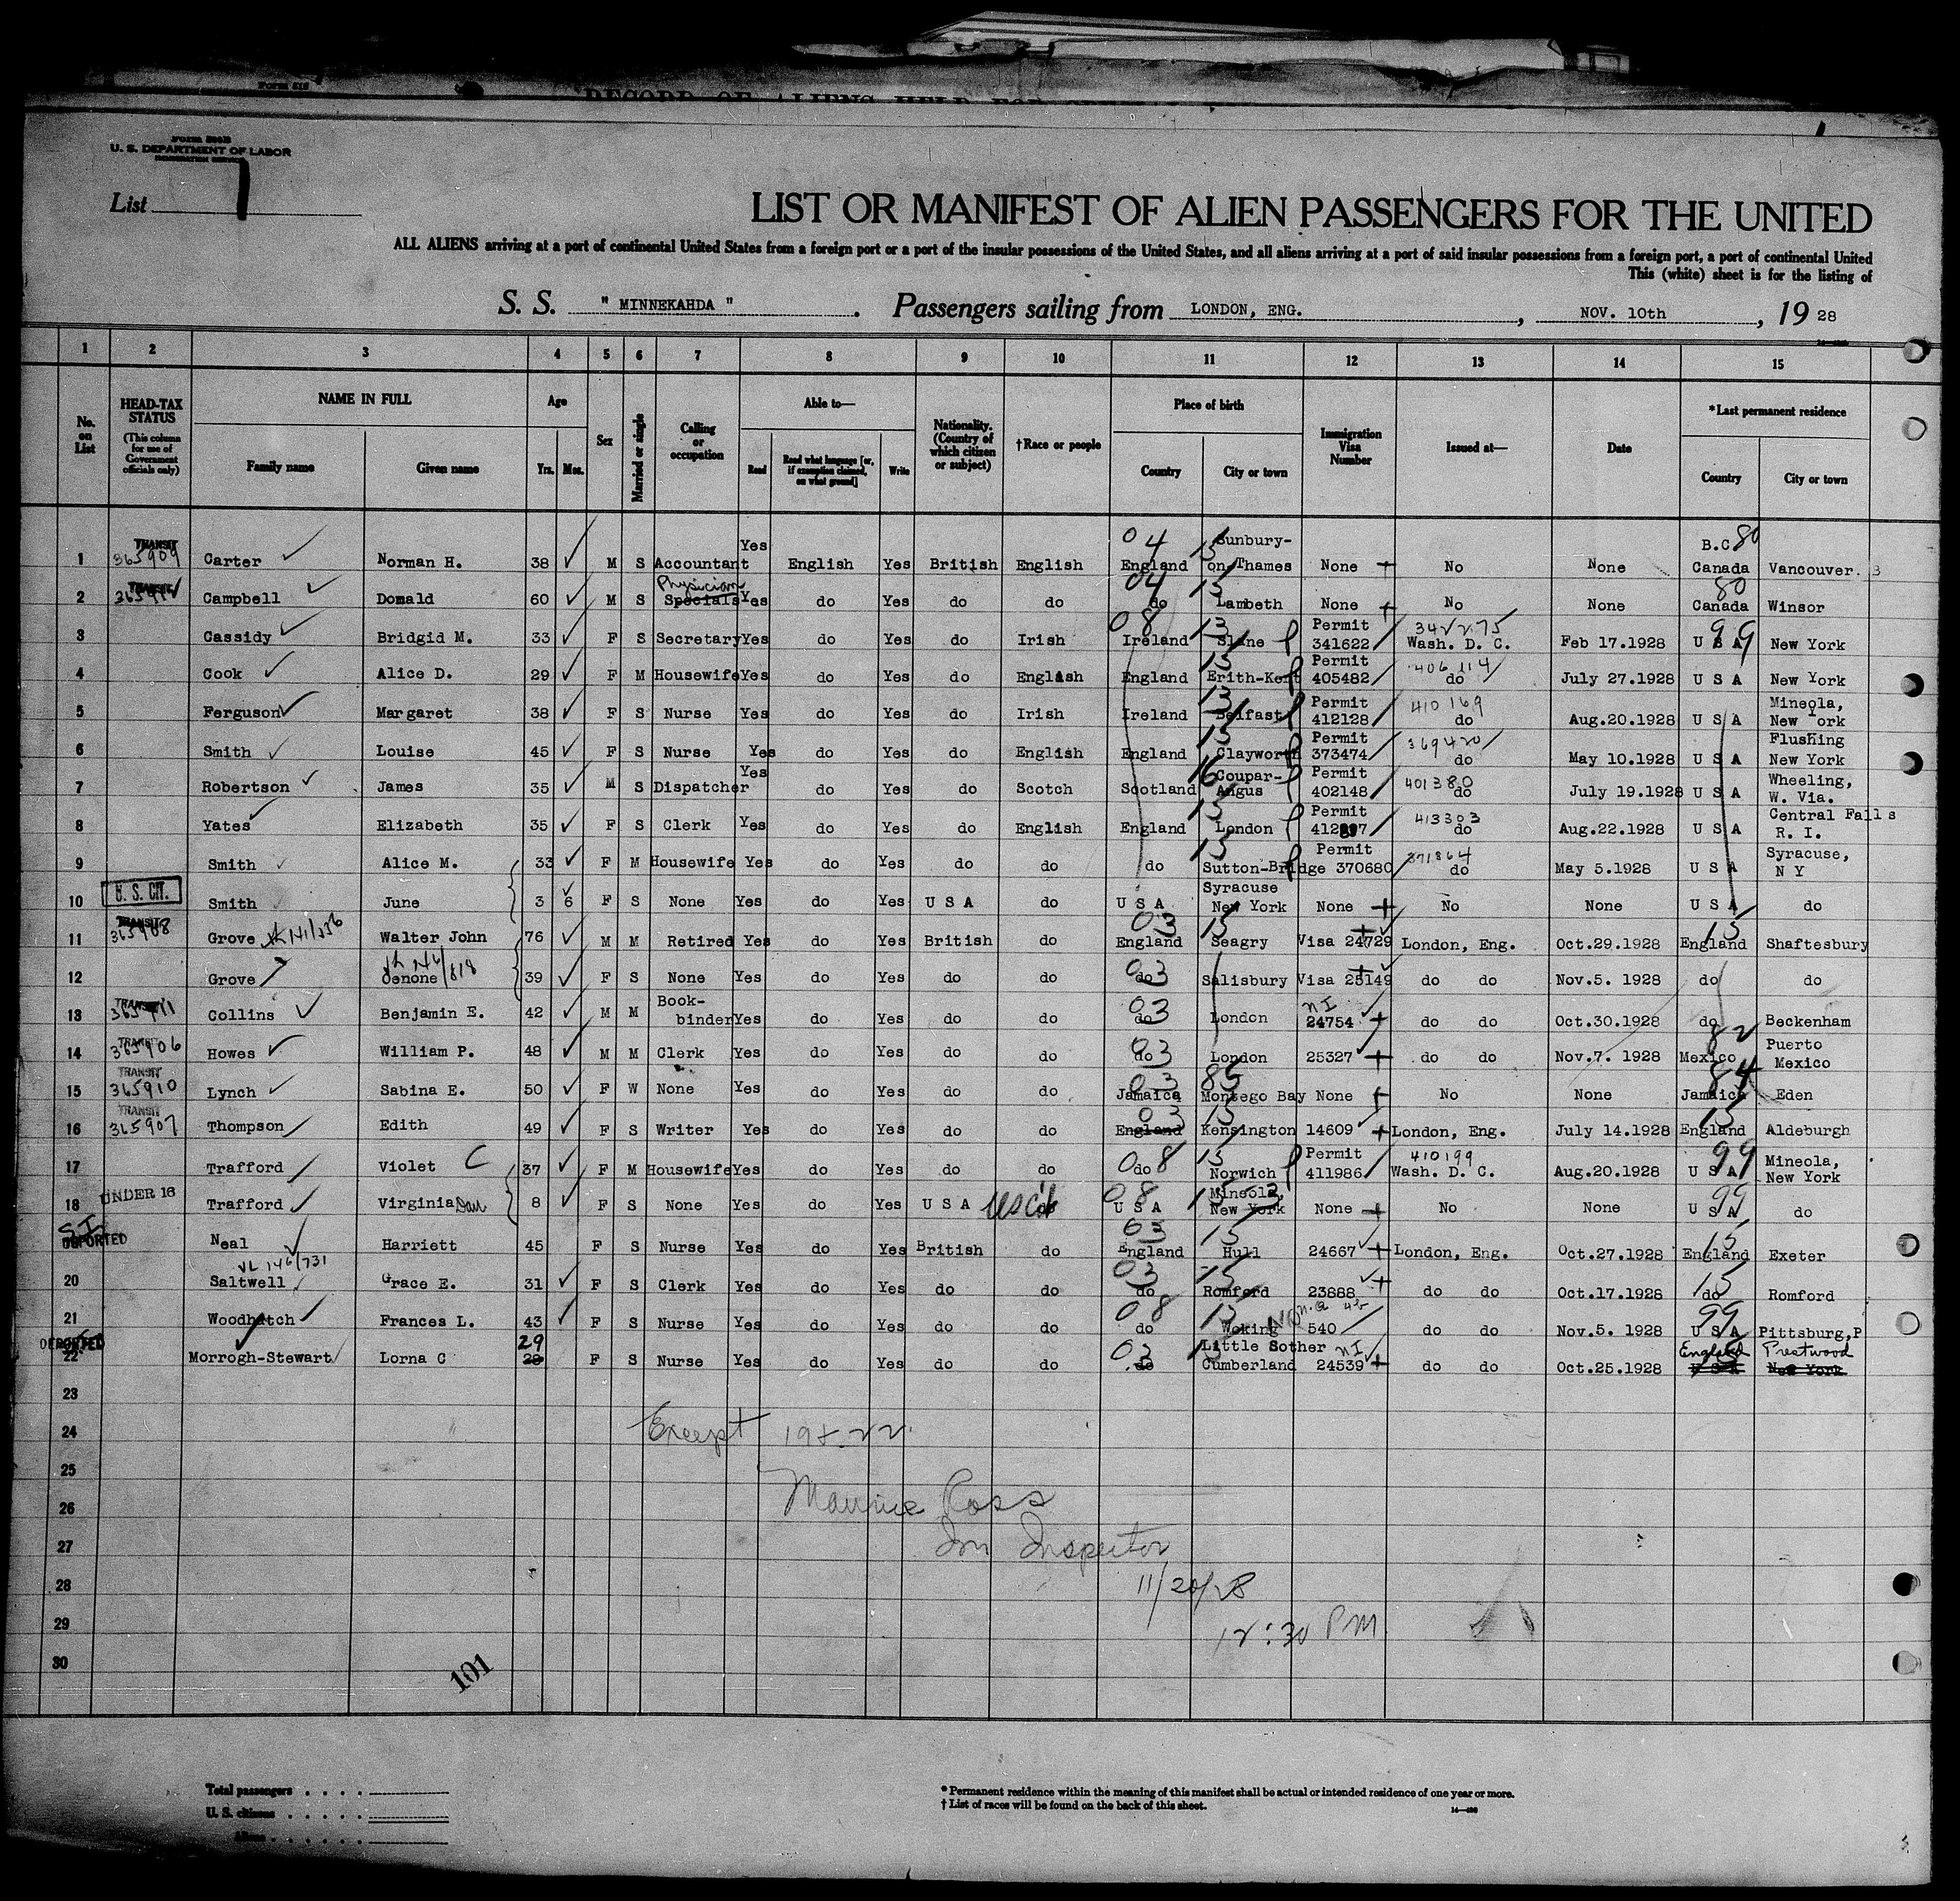 Form 515
RECORD OF ALIENS HELD FOR
U. S. DEPARTMENT OF LABOR
List 7
LIST OR MANIFEST OF ALIEN PASSENGERS FOR THE UNITED
ALL ALIENS arriving at a port of continental United States from a foreign port or a port of the insular possessions of the United States, and all aliens arriving at a port of said insular possessions from a foreign port, a port of continental United
This (white) sheet is for the listing of
S. S. " MINNEKAHDA " . Passengers sailing from LONDON, ENG. , NOV. 10th , 19 28
1 2 3 4 5 6 7 8 9 10 11 12 13 14 15
No. on List
HEAD-TAX STATUS (This column for use of Government officials only)
NAME IN FULL Family name Given name
Age Yrs. Mos.
Sex
Married or single
Calling or occupation
Able to— Read Read what language [or, if exemption claimed, on what ground] Write
Nationality. (Country of which citizen or subject)
†Race or people
Place of birth Country City or town
Immigration Visa Number
Issued at—
Date
*Last permanent residence Country City or town
1 TRANSIT 365909 Carter Norman H. 38 M S Accountant Yes English Yes British English 04 England 15 Sunbury- on Thames None No None B.C 80 Canada Vancouver.
2 TRANSIT Campbell Donald 60 M S Physician Specials Yes do Yes do do 04 do 15 Lambeth None No None 80 Canada Winsor
3 Cassidy Bridgid M. 33 F S Secretary Yes do Yes do Irish 08 Ireland Sline Permit 341622 Wash. D. C. Feb 17.1928 99 U S A New York
4 Cook Alice D. 29 F M Housewife Yes do Yes do English England 15 Erith-Kent Permit 405482 406114 do July 27.1928 U S A New York
5 Ferguson Margaret 38 F S Nurse Yes do Yes do Irish Ireland 13 Belfast Permit 412128 410169 do Aug.20.1928 U S A Mineola, New York
6 Smith Louise 45 F S Nurse Yes do Yes do English England 15 Clayworth Permit 373474 369420 do May 10.1928 U S A Flushing New York
7 Robertson James 35 M S Dispatcher Yes do Yes do Scotch Scotland 16 Coupar- Angus Permit 402148 401380 do July 19.1928 U S A Wheeling, W. Via.
8 Yates Elizabeth 35 F S Clerk Yes do Yes do English England 15 London Permit 413303 do Aug.22.1928 U S A Central Falls R. I.
9 Smith Alice M. 33 F M Housewife Yes do Yes do do do 15 Sutton-Bridge Permit 370680 371864 do May 5.1928 U S A Syracuse, N Y
10 U. S. CIT. Smith June 3 6 F S None Yes do Yes U S A do U S A Syracuse New York None No None U S A do
11 TRANSIT 365908 Grove Walter John 76 M M Retired Yes do Yes British do 03 England 15 Seagry Visa 24729 London, Eng. Oct.29.1928 15 England Shaftesbury
12 Grove Oenone 39 F S None Yes do Yes do do 03 do Salisbury Visa 25149 do do Nov.5. 1928 do do
13 TRANSIT Collins Benjamin E. 42 M M Book- binder Yes do Yes do do 03 do London NI 24754 do do Oct.30.1928 do Beckenham
14 TRANSIT 365906 Howes William P. 48 M M Clerk Yes do Yes do do 03 do London 25327 do do Nov.7. 1928 82 Mexico Puerto Mexico
15 TRANSIT 365910 Lynch Sabina E. 50 F W None Yes do Yes do do 03 Jamaica 85 Montego Bay None No None 84 Jamaica Eden
16 TRANSIT 365907 Thompson Edith 49 F S Writer Yes do Yes do do 03 England 15 Kensington 14609 London, Eng. July 14.1928 15 England Aldeburgh
17 Trafford Violet C 37 F M Housewife Yes do Yes do do 08 do 15 Norwich Permit 411986 410199 Wash. D. C. Aug.20.1928 99 U S A Mineola, New York
18 UNDER 16 Trafford Virginia Dau 8 F S None Yes do Yes U S A USC do 08 U S A Mineola, New York None No None 99 U S A do
19 S.I. DEPORTED Neal Harriett 45 F S Nurse Yes do Yes British do 03 England 15 Hull 24667 London, Eng. Oct.27.1928 15 England Exeter
20 VL 146/731 Saltwell Grace E. 31 F S Clerk Yes do Yes do do 03 do 15 Romford 23888 do do Oct.17.1928 15 do Romford
21 Woodhatch Frances L. 43 F S Nurse Yes do Yes do do 08 do 15 Woking 540 do do Nov.5. 1928 99 U S A Pittsburg,P
22 DEPORTED Morrogh-Stewart Lorna C 29 28 F S Nurse Yes do Yes do do 03 do 15 Little Sother Cumberland NI 24539 do do Oct.25.1928 England U S A Prestwood New York
23
24 Except 19 & 22.
25
26 Maurice Ross
27 Im Inspector
28 11/20/28
29 12:30 PM
30
101
Total passengers . . . .
U. S. citizens . . . . .
Aliens . . . . . .
* Permanent residence within the meaning of this manifest shall be actual or intended residence of one year or more.
† List of races will be found on the back of this sheet.